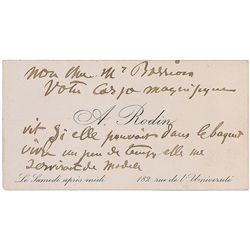 mon cher Mr
Votre corps magnifique
A. Rodin
vit si elle pouvait dans le
vivre un peu de temps elle me
servirait de modele
Le Samedi après-midi 182, rue de l'Université